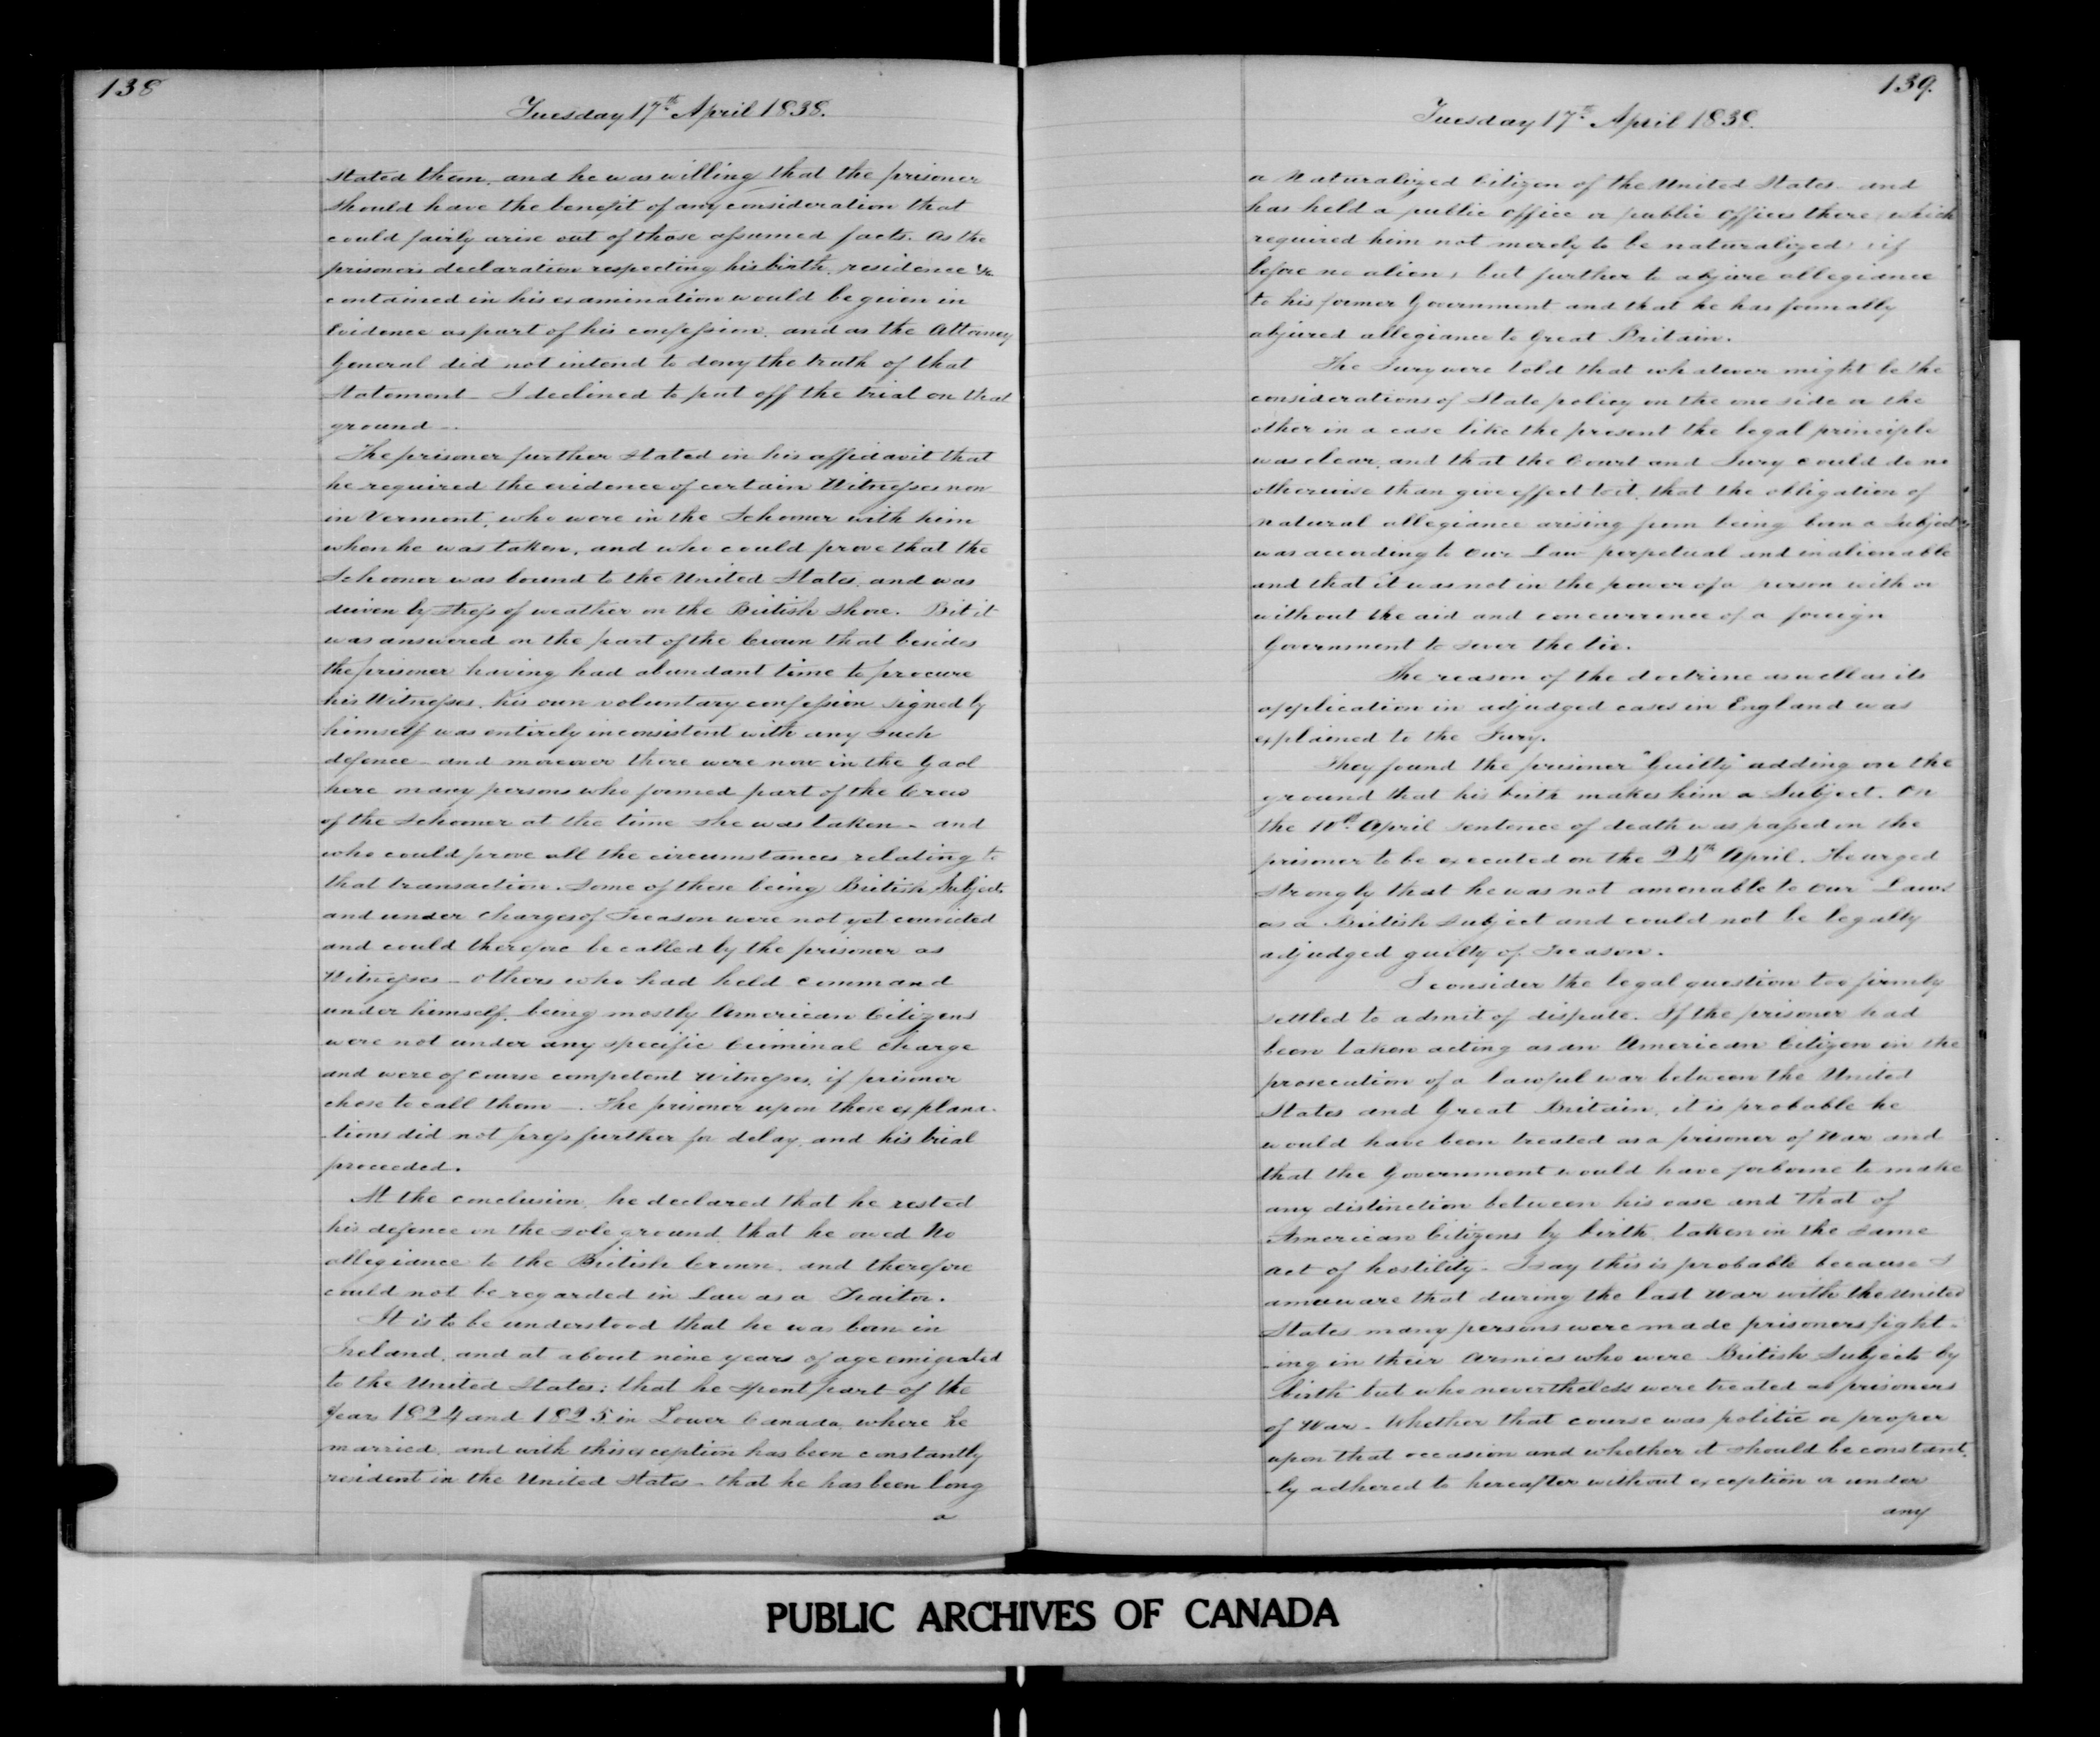 138
Tuesday 17th April 1838.
stated them, and he was willing that the prisoner
should have the benefit of any consideration that
could fairly arise out of those assumed facts. As the
prisoners declaration respecting his birth, residence &c
contained in his examination would be given in
Evidence as part of his confession, and as the Attorney
General did not intend to deny the truth of that
statement - I declined to put off the trial on that
ground -.
The prisoner further stated in his affidavit that
he required the evidence of certain Witnesses now
in Vermont, who were in the Schooner with him
when he was taken, and who could prove that the
Schooner was bound to the United States, and was
driven by stress of weather on the British shore. But it
was answered on the part of the Crown that besides
the prisoner having had abundant time to procure
his Witnesses, his own voluntary confession signed by
himself was entirely inconsistent with any such
defence - and moreover there were now in the Gaol
here many persons who formed part of the Crew
of the Schooner at the time she was taken - and
who could prove all the circumstances relating to
that transaction. Some of these being British Subjects
and under charges of Treason were not yet convicted
and could therefore be called by the prisoner as
Witnesses - others who had held command
under himself, being mostly American Citizens
were not under any specific Criminal charge
and were of course competent Witnesses, if prisoner
chose to call them -. The prisoner upon these explana-
-tions did not press further for delay, and his trial
proceeded.
At the conclusion, he declared that he rested
his defence on the sole ground, that he owed no
allegiance to the British Crown, and therefore
could not be regarded in Law as a Traitor.
It is to be understood that he was born in
Ireland, and at about nine years of age emigrated
to the United States; that he spent part of the
Years 1824 and 1825 in Lower Canada, where he
married, and with this exception has been constantly
resident in the United States - that he has been long
a
139.
Tuesday 17th April 1838.
a Naturalized Citizen of the United States and
has held a public office or public offices there, which
required him not merely to be naturalized, if
before no alien, but further to abjure allegiance
to his former Government and that he has formally
abjured allegiance to Great Britain.
The Jury were told that whatever might be the
considerations of State policy on the one side or the
other in a case like the present the legal principle
was clear, and that the Court and Jury could do no
otherwise than give effect to it, that the obligation of
natural allegiance arising from being born a Subject
was according to our Law perpetual and inalienable
and that it was not in the power of a person with or
without the aid and concurrence of a foreign
Government to sever the tie.
The reason of the doctrine as well as its
application in adjudged cases in England was
explained to the Jury.
They found the prisoner "Guilty" adding on the
ground that his birth makes him a Subject. On
the 10th April sentence of death was passed on the
prisoner to be executed on the 24th April. He urged
strongly that he was not amenable to our Laws
as a British Subject and could not be legally
adjudged guilty of Treason.
I consider the legal question too firmly
settled to admit of dispute. If the prisoner had
been taken acting as an American Citizen in the
prosecution of a lawful war between the United
States and Great Britain, it is probable he
would have been treated as a prisoner of War and
that the Government would have forborne to make
any distinction between his case and that of
American Citizens by birth, taken in the same
act of hostility. I say this is probable because I
am aware that during the last War with the United
States many persons were made prisoners fight-
-ing in their Armies who were British Subjects by
birth but who nevertheless were treated as prisoners
of War - Whether that course was politic or proper
upon that occasion and whether it should be constant-
-ly adhered to hereafter without exception or under
any
PUBLIC ARCHIVES OF CANADA